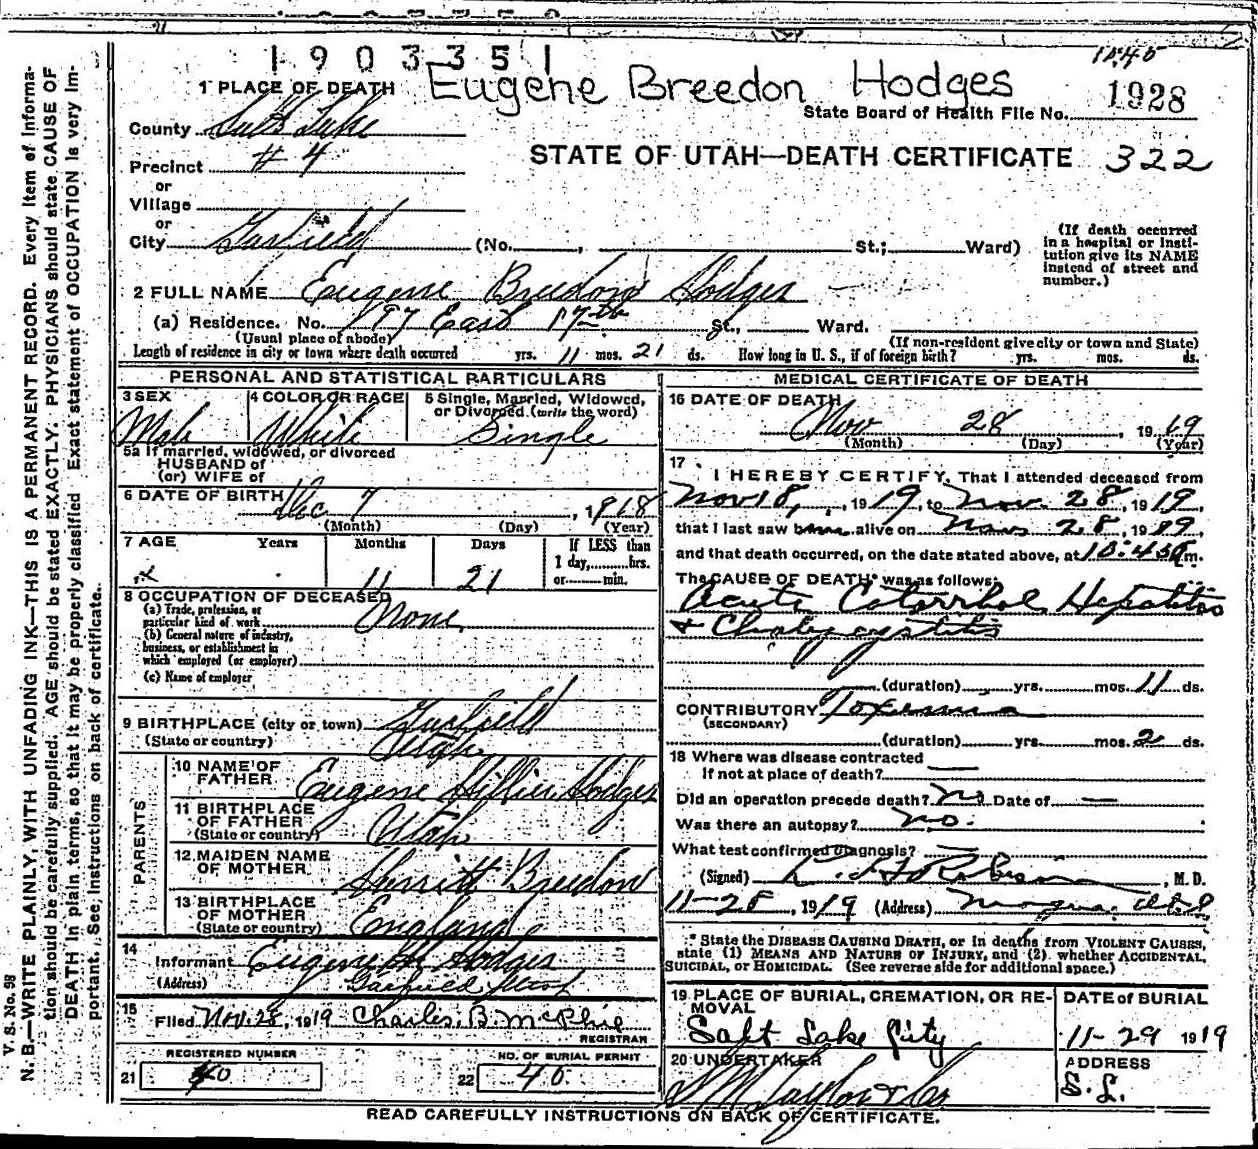 1903351
Eugene Breedon Hodges
1 PLACE OF DEATH
State Board of Health File No. 1928
County Salt Lake
STATE OF UTAH—DEATH CERTIFICATE 322
Precinct #4
or
Village
or
City Garfield (No. , St.; Ward)
(If death occurred in a hospital or Institution give its NAME instead of street and number.)
2 FULL NAME Eugene Breedon Hodges
(a) Residence. No. 197 East 17th St., Ward.
(Usual place of abode) (If non-resident give city or town and State)
Length of residence in city or town where death occurred yrs. 11 mos. 21 ds. How long in U. S., if of foreign birth? yrs. mos. ds.
PERSONAL AND STATISTICAL PARTICULARS
3 SEX Male
4 COLOR OR RACE White
5 Single, Married, Widowed, or Divorced (write the word) Single
5a If married, widowed, or divorced
HUSBAND of
(or) WIFE of
6 DATE OF BIRTH Dec 7, 1918
(Month) (Day) (Year)
7 AGE Years Months Days If LESS than
11 21 1 day, hrs.
or min.
8 OCCUPATION OF DECEASED None
(a) Trade, profession, or
particular kind of work
(b) General nature of industry,
business, or establishment in
which employed (or employer)
(c) Name of employer
9 BIRTHPLACE (city or town) Garfield
(State or country) Utah
PARENTS
10 NAME OF FATHER Eugene Hillier Hodges
11 BIRTHPLACE OF FATHER
(State or country) Utah
12 MAIDEN NAME OF MOTHER Harriett Breedon
13 BIRTHPLACE OF MOTHER
(State or country) England
14 Informant Eugene H Hodges
(Address) Garfield Utah
15 Filed Nov. 28, 1919 Charles. B. McPhie
REGISTRAR
REGISTERED NUMBER
21 40
NO. OF BURIAL PERMIT
22 40
MEDICAL CERTIFICATE OF DEATH
16 DATE OF DEATH
Nov 28, 1919
(Month) (Day) (Year)
17 I HEREBY CERTIFY, That I attended deceased from
Nov 18, 1919, to Nov. 28, 1919,
that I last saw him alive on Nov 28, 1919,
and that death occurred, on the date stated above, at 10:45 m.
The CAUSE OF DEATH* was as follows:
Acute Catarrhal Hepatitis
& Cholecystitis
(duration) yrs. mos. 11 ds.
CONTRIBUTORY Toxemia
(SECONDARY)
(duration) yrs. mos. 2 ds.
18 Where was disease contracted
If not at place of death? —
Did an operation precede death? No Date of —
Was there an autopsy? No.
What test confirmed diagnosis? —
(Signed) Robison, M. D.
11-28, 1919 (Address) Magna. Utah
* State the DISEASE CAUSING DEATH, or in deaths from VIOLENT CAUSES,
state (1) MEANS AND NATURE OF INJURY, and (2) whether ACCIDENTAL,
SUICIDAL, or HOMICIDAL. (See reverse side for additional space.)
19 PLACE OF BURIAL, CREMATION, OR REMOVAL
Salt Lake City
DATE of BURIAL
11-29 1919
20 UNDERTAKER
S M Taylor & Co
ADDRESS
S. L.
READ CAREFULLY INSTRUCTIONS ON BACK OF CERTIFICATE.
V. S. No. 98
N. B.—WRITE PLAINLY, WITH UNFADING INK—THIS IS A PERMANENT RECORD. Every item of informa-
tion should be carefully supplied. AGE should be stated EXACTLY. PHYSICIANS should state CAUSE OF
DEATH in plain terms, so that it may be properly classified. Exact statement of OCCUPATION is very im-
portant. See instructions on back of certificate.